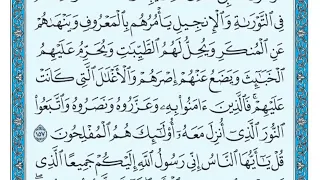 فِى التَّوْرَىٰةِ وَالْإِنجِيلِ يَأْمُرُهُم بِالْمَعْرُوفِ وَيَنْهَىٰهُمْ
عَنِ الْمُنكَرِ وَيُحِلُّ لَهُمُ الطَّيِّبَٰتِ وَيُحَرِّمُ عَلَيْهِمُ
الْخَبَٰٓئِثَ وَيَضَعُ عَنْهُمْ إِصْرَهُمْ وَالْأَغْلَٰلَ الَّتِى كَانَتْ
عَلَيْهِمْ ۚ فَالَّذِينَ ءَامَنُوا۟ بِهِۦ وَعَزَّرُوهُ وَنَصَرُوهُ وَاتَّبَعُوا۟
النُّورَ الَّذِىٓ أُنزِلَ مَعَهُۥٓ ۙ أُو۟لَٰٓئِكَ هُمُ الْمُفْلِحُونَ ١٥٧
قُلْ يَٰٓأَيُّهَا النَّاسُ إِنِّى رَسُولُ اللَّهِ إِلَيْكُمْ جَمِيعًا الَّذِى